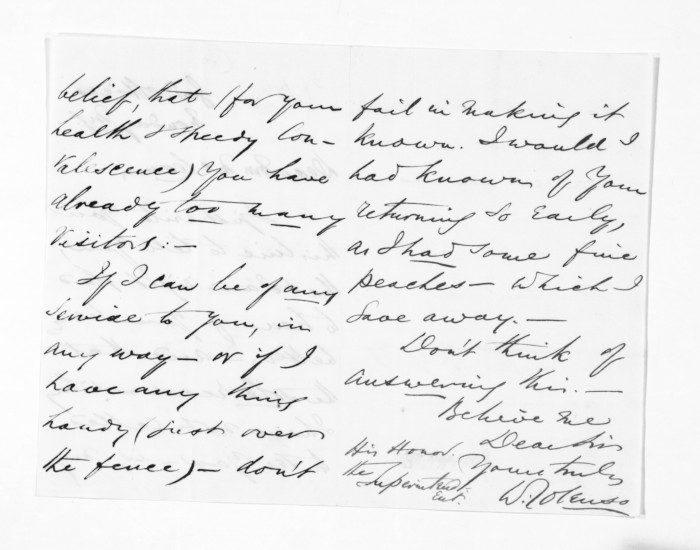 belief, that (for your
health & speedy Con-
valescence) You have
already too many
Visitors:—
If I can be of any
Service to You, in
any way — or if I
have any thing
handy (just over
the fence) — don't
fail in making it
Known. I would I
had known of Your
returning so Early,
as I had some fine
Peaches — which I
Gave away. —
Don't think of
answering this. —
Believe me
Dear Sir
Yours truly
W. Colenso
His Honor.
the Superintend-
ent.